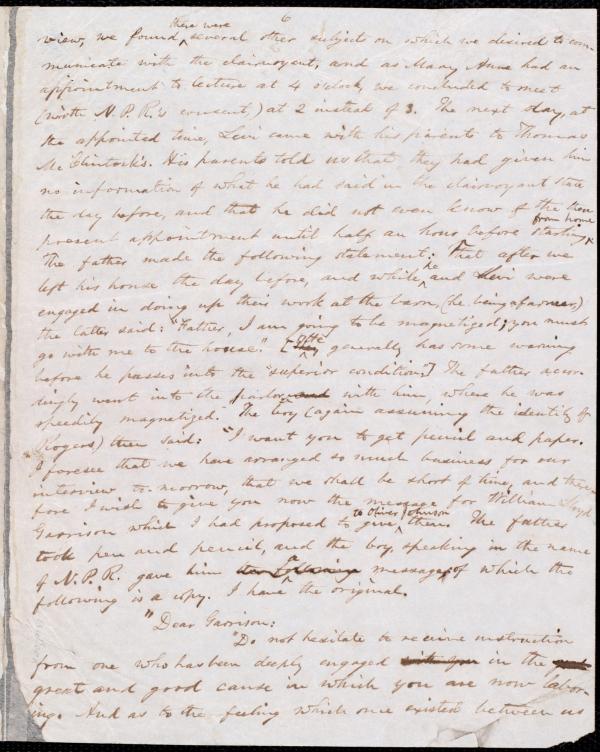 6
view, we found ^there were several other subjects on which we desired to com-
municate with the clairvoyant, and as Mary Anne had an
appointment to lecture at 4 o'clock, we concluded to meet
(with N. P. R.'s consent,) at 2 instead of 3. The next day, at
the appointed time, Levi came with his parents to Thomas
McClintock's. His parents told us that they had given him
no information of what he had said in the clairvoyant state
the day before, and that he did not even know of the then
present appointment until half an hour before starting ^from home
The father made the following statement: That after we
left his house the day before, and while ^he and Levi were
engaged in doing up their work at the barn, (he being a farmer,)
the latter said: "Father, I am going to be magnetized; you must
go with me to the house." [He generally has some warning
before he passes into the "superior condition."] The father accor-
dingly went into the parlor with him, where he was
speedily magnetized. The boy (again assuming the identity of
Rogers) then said: "I want you to get pencil and paper.
I foresee that we have arranged so much business for our
interview to-morrow, that we shall be short of time, and there-
fore I wish to give you now the message for William Lloyd
Garrison which I had proposed to give ^to Oliver Johnson then. The father
took pen and pencil, and the boy, speaking in the name
of N. P. R. gave him ^a message, of which the
following is a copy. I have the original.
"Dear Garrison:
"Do not hesitate to receive instruction
from one who has been deeply engaged with you in the
great and good cause in which you are now labor-
ing. And as to the feeling which once existed between us